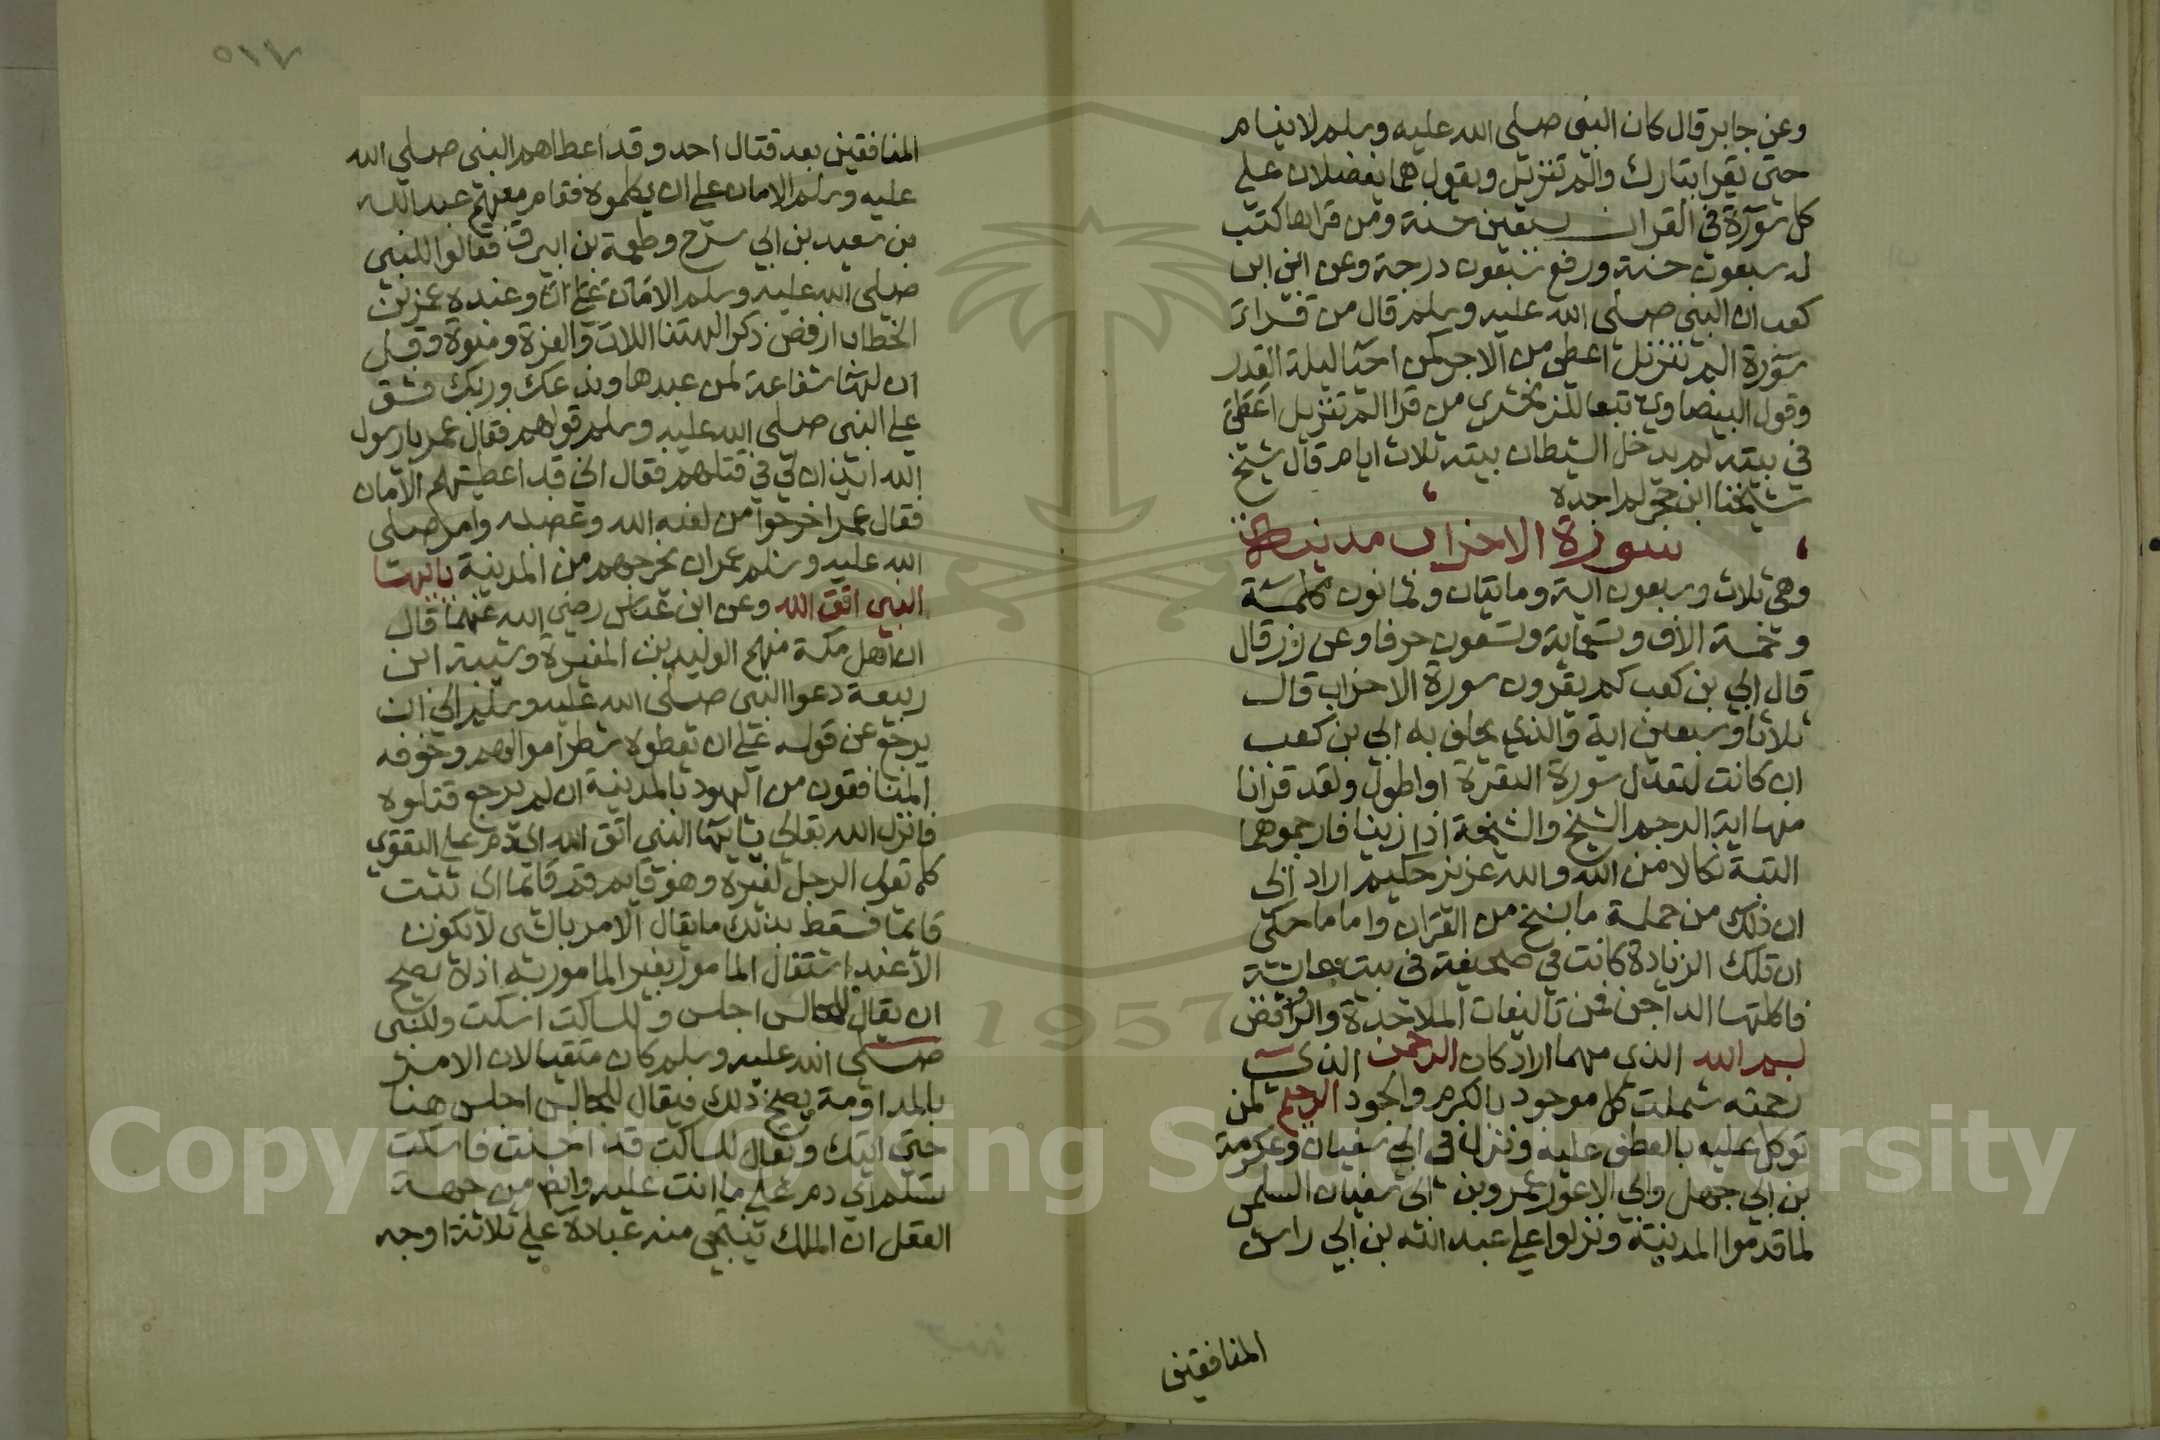 وعن جابر قال كان النبى صلى الله عليه وسلم لا ينام
حتى يقرا تبارك والم تنزيل ويقول هما يفضلان على
كل سورة في القران سبعين حسنة ومن قراها كتب
له سبعون حسنة ورفع سبعون درجة وعن ابى ابن
كعب ان النبى صلى الله عليه وسلم قال من قراء
سورة الم تنزيل اعطى من الاجر كمن احيا ليلة القدر
وقول البيضاوى تبعا للزمخشرى من قرا الم تنزيل
في بيته لم يدخل الشيطان بيته ثلاث ايام قال شيخ
شيخنا ابن حجر لم اجده
سورة الاحزاب مدنية
وهى ثلاث وسبعون اية ومايتان وثمانون كلمة
وخمسة الاف وتسعماية وتسعون حرفا وعن زر قال
قال ابي بن كعب كم تقرون سورة الاحزاب قال
ثلاثا وسبعين اية قال والذي يحلف به ابي بن كعب
ان كانت لتعدل سورة البقرة او اطول ولقد قرانا
منها اية الرجم الشيخ والشيخة اذا زنيا فارجموهما
البتة نكالا من الله والله عزيز حكيم اراد ابى
ان ذلك من جملة ما نسخ من القران واما ما حكى
ان تلك الزيادة كانت في صحيفة في بيت عائشة
فاكلتها الداجن فمن تاليفات الملاحدة والروافض
بسم الله الذى مهما اراد كان الرحمن الذى
رحمته شملت كل موجود بالكرم والجود الرحيم لمن
توكل عليه بالعطف عليه ونزل في ابى سفيان وعكرمة
بن ابي جهل وابي الاعور عمرو بن ابى سفيان السلمى
لما قدموا المدينة ونزلوا على عبد الله بن ابي راس
المنافقين
٥١٧
المنافقين بعد قتال احد وقد اعطاهم النبى صلى الله
عليه وسلم الامان على ان يكلموه فقام معهم عبد الله
بن سعيد بن ابي سرح وطعمة بن ابيرق فقالوا للنبى
صلى الله عليه وسلم وعنده عمر بن
الخطاب ارفض ذكر الهتنا اللات والعزة ومنوة وقل
ان لها شفاعة لمن عبدها وندعك وربك فشق
على النبى صلى الله عليه وسلم قولهم فقال عمر يا رسول
الله ايذن لي في قتلهم فقال انى قد اعطيتهم الامان
فقال عمر اخرجوا من لعنه الله وغضبه وامر صلى
الله عليه وسلم عمر ان يخرجهم من المدينة يا ايها
النبى اتق الله وعن ابن عباس رضى الله عنهما قال
ان اهل مكة منهم الوليد بن المغيرة وشيبة ابن
ربيعة دعوا النبى صلى الله عليه وسلم الى ان
يرجع عن قوله على ان يعطوه شطر اموالهم وخوفه
المنافقون من اليهود بالمدينة ان لم يرجع قتلوه
فانزل الله تعالى يا ايها النبى اتق الله اى دم على التقوى
كما تقول الرجل لغيره وهو قايم قم قايما اى اثبت
قايما فسقط بذلك ما يقال الامر بالشى لا يكون
الا عند اشتغال المامور بغير المامور به اذ لا يصلح
ان يقال للجالس اجلس وللساكت اسكت والنبى
صلى الله عليه وسلم كان متقيا لان الامر
بالمداومة يصح ذلك فيقال للجالس اجلس هنا
حتى اتيك ويقال للساكت قد احسنت فاسكت
تسلم اى دم على ما انت عليه وايضا من جهة
العقل ان الملك يتقى منه عباده على ثلاثة اوجه
Copyright © King Saud University
1957